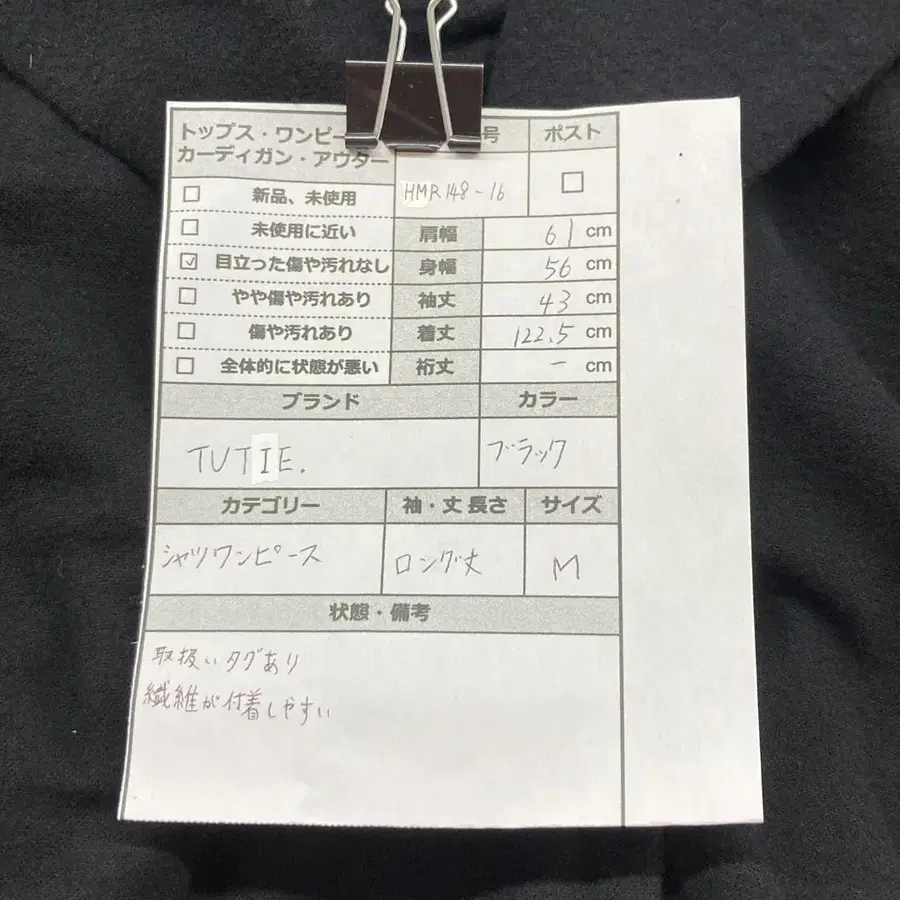 トップス・ワンピー
カーディガン・アウター
号
ポスト
□ 新品、未使用
HMR148-16
□
□ 未使用に近い
肩幅 61 cm
☑ 目立った傷や汚れなし
身幅 56 cm
□ やや傷や汚れあり
袖丈 43 cm
□ 傷や汚れあり
着丈 122.5 cm
□ 全体的に状態が悪い
裄丈 - cm
ブランド
カラー
TUTIE.
ブラック
カテゴリー
袖・丈 長さ
サイズ
シャツワンピース
ロング丈
M
状態・備考
取扱いタグあり
繊維が付着しやすい